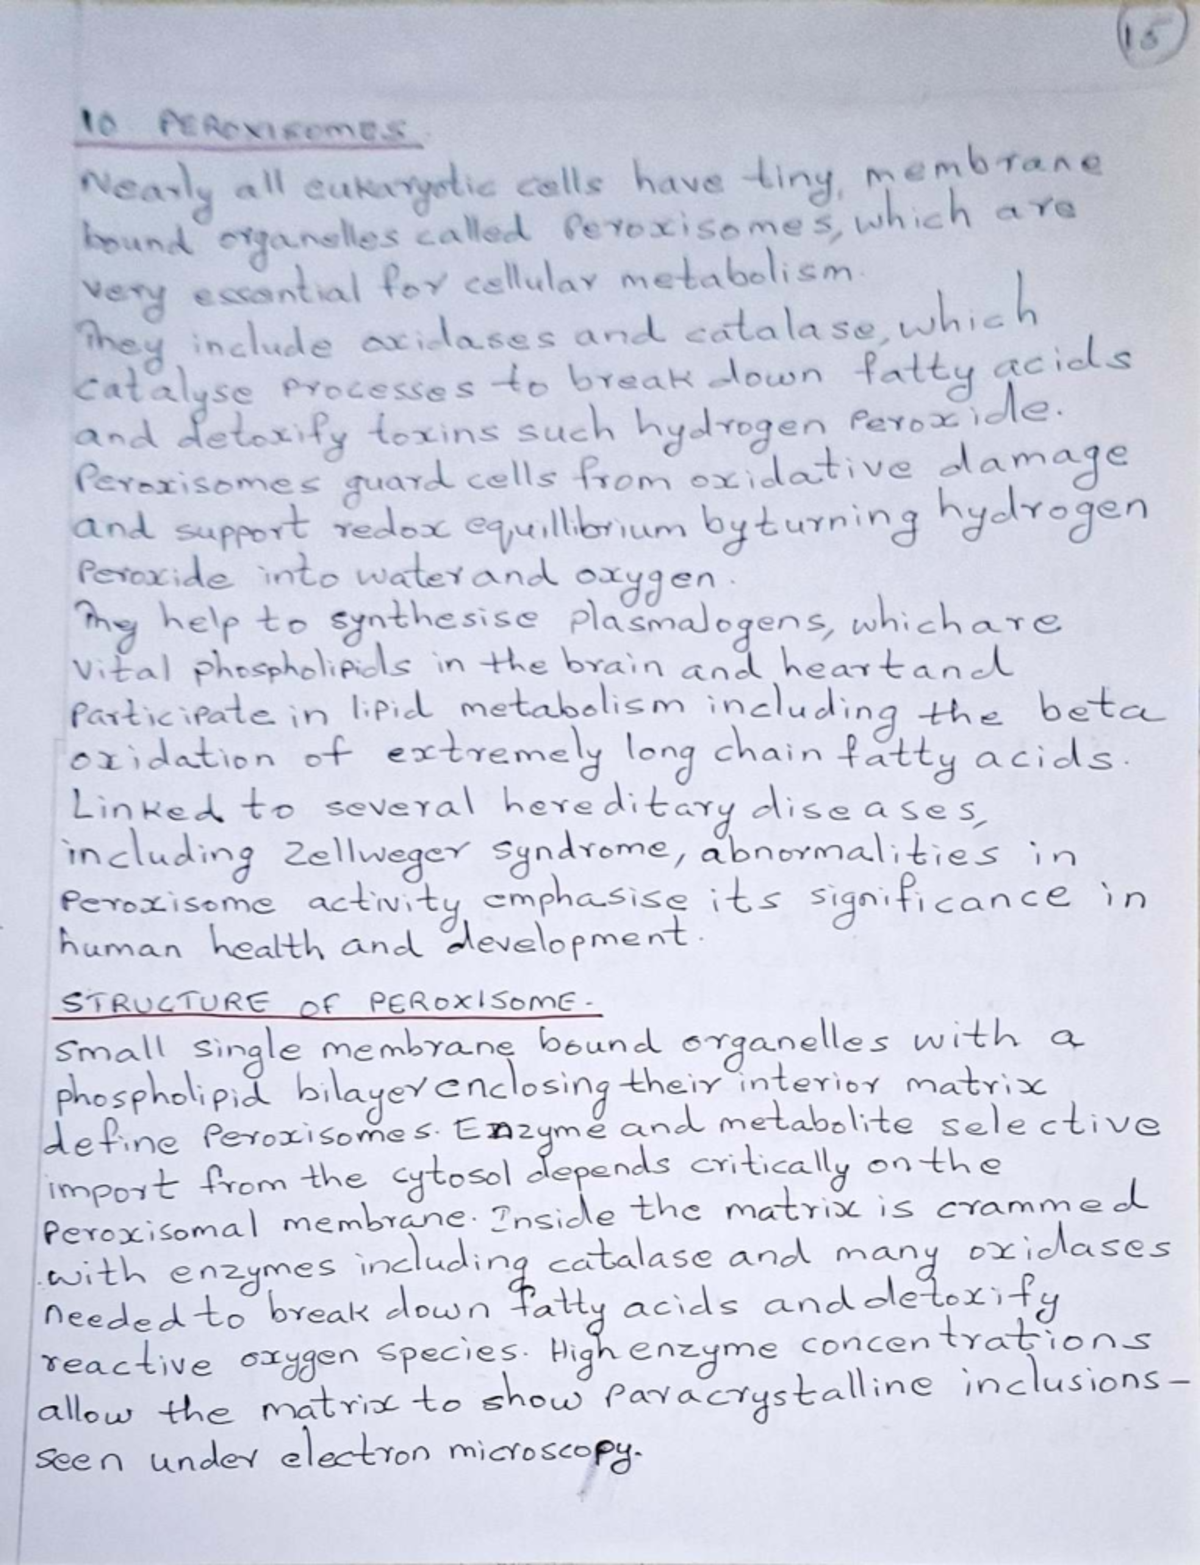 15
10 PEROXISOMES.
Nearly all eukaryotic cells have tiny, membrane
bound organelles called Peroxisomes, which are
very essential for cellular metabolism.
They include oxidases and catalase, which
catalyse processes to break down fatty acids
and detoxify toxins such hydrogen Peroxide.
Peroxisomes guard cells from oxidative damage
and support redox equillibrium by turning hydrogen
Peroxide into water and oxygen.
They help to synthesise plasmalogens, which are
vital phospholipids in the brain and heart and
Participate in lipid metabolism including the beta
oxidation of extremely long chain fatty acids.
Linked to several hereditary diseases,
including Zellweger syndrome, abnormalities in
Peroxisome activity emphasise its significance in
human health and development.
STRUCTURE OF PEROXISOME.
Small single membrane bound organelles with a
phospholipid bilayer enclosing their interior matrix
define Peroxisomes. Enzyme and metabolite selective
import from the cytosol depends critically on the
Peroxisomal membrane. Inside the matrix is crammed
with enzymes including catalase and many oxidases
needed to break down fatty acids and detoxify
reactive oxygen species. High enzyme concentrations
allow the matrix to show Paracrystalline inclusions-
seen under electron microscopy.